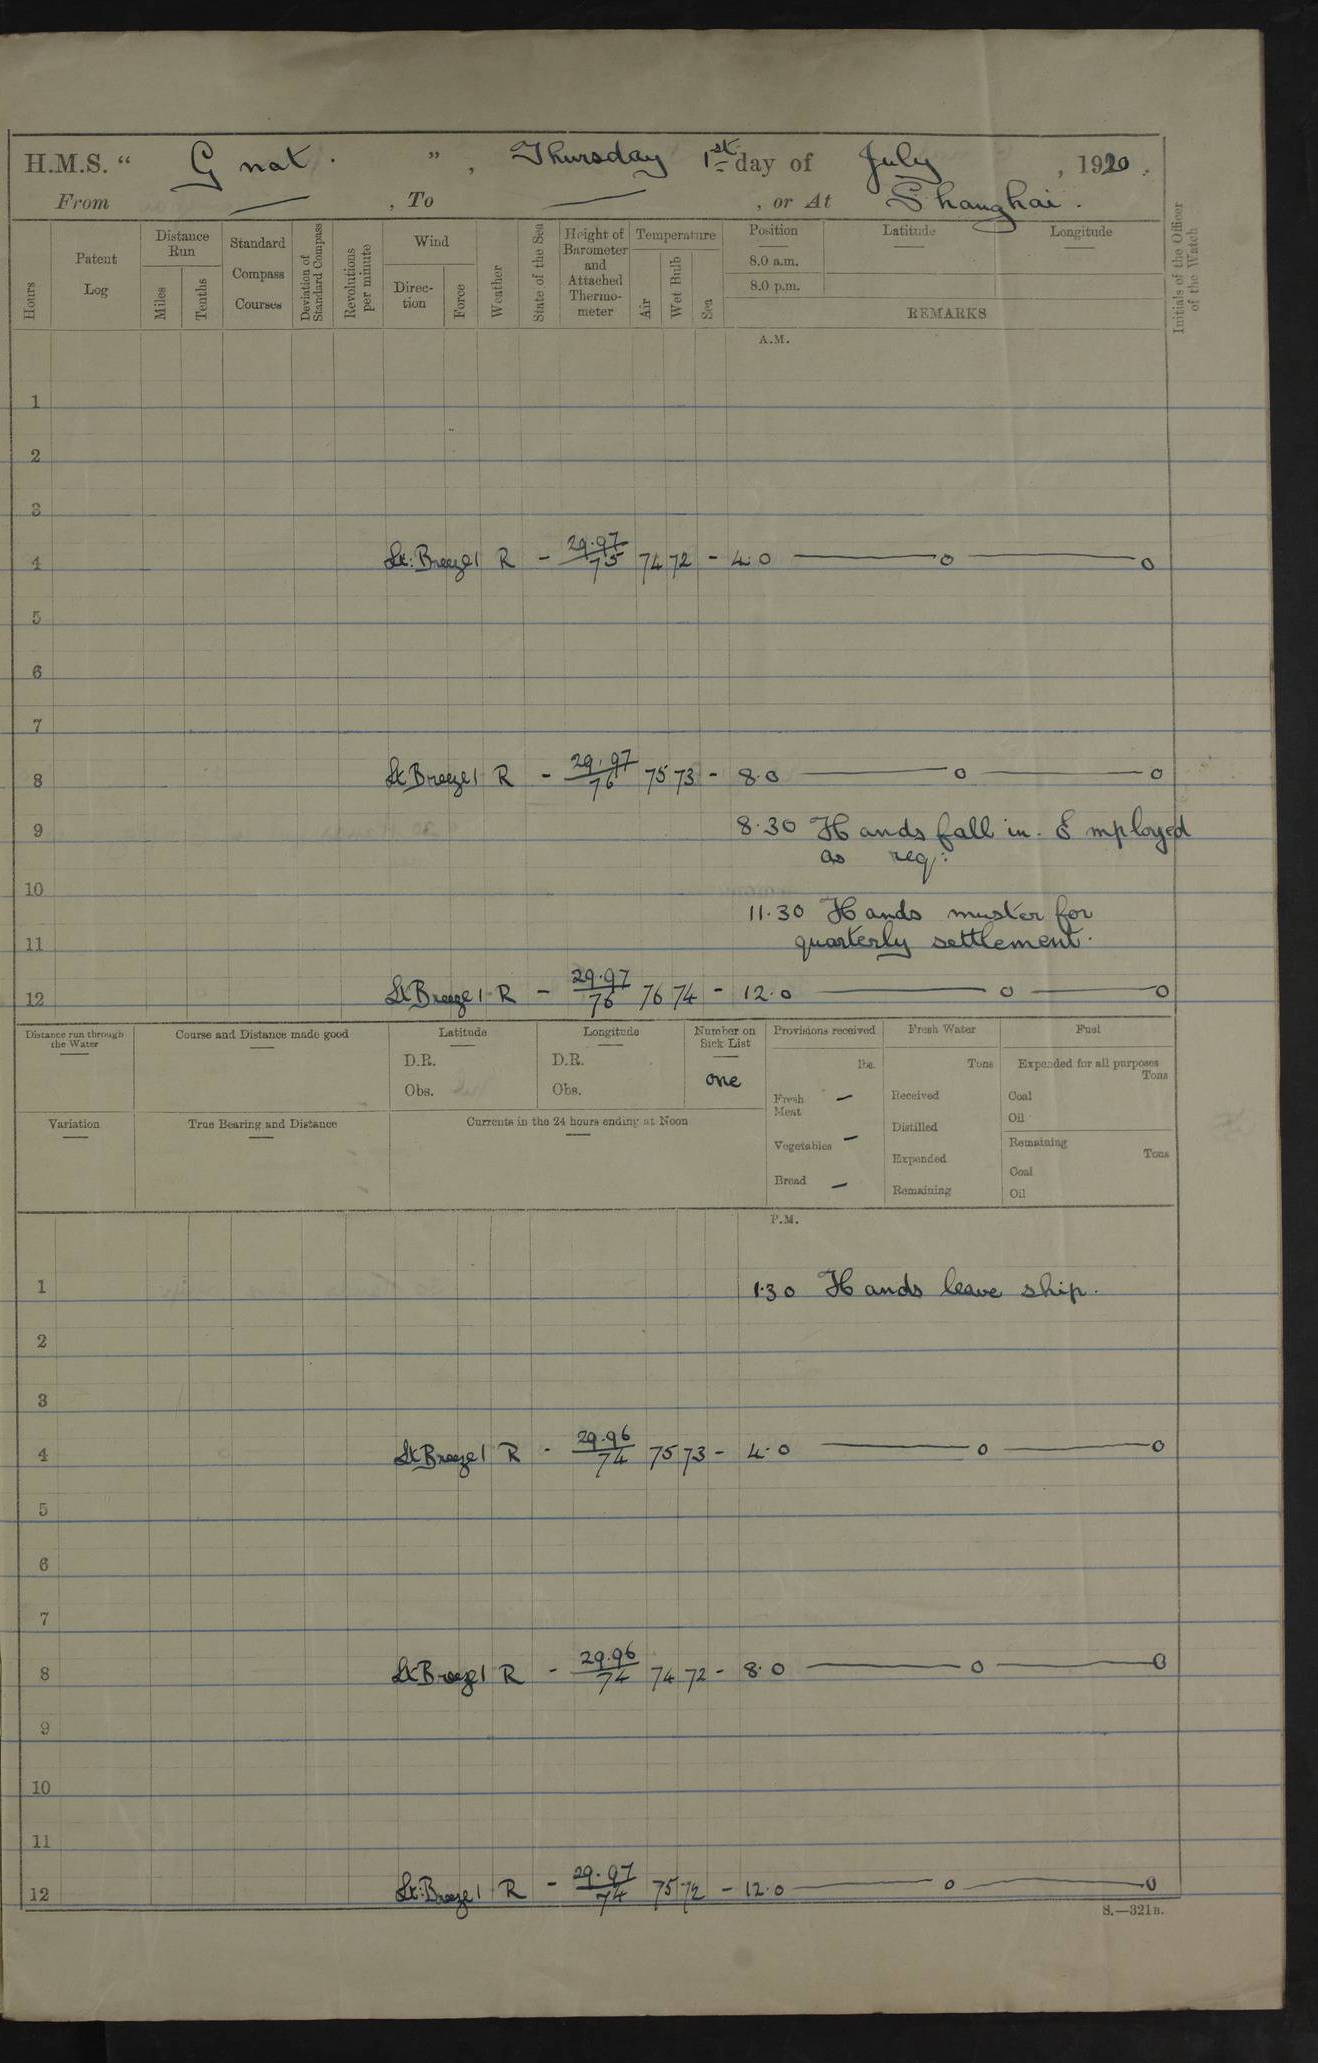 H.M.S. “ Gnat. ” , Thursday 1st day of July , 1920.
From — , To — , or At Shanghai.
Hours
Patent Log
Distance Run
Miles
Tenths
Standard Compass Courses
Deviation of Standard Compass
Revolutions per minute
Wind
Direc-tion
Force
Weather
State of the Sea
Height of Barometer and Attached Thermo-meter
Temperature
Air
Wet Bulb
Sea
Position
8.0 a.m.
8.0 p.m.
Latitude
Longitude
REMARKS
Initials of the Officer of the Watch
A.M.
1
2
3
4 Lt: Breeze 1 R - 29.97/75 74 72 - 4.0 —— o —— o
5
6
7
8 Lt Breeze 1 R - 29.97/76 75 73 - 8.0 —— o —— o
9 8.30 Hands fall in. Employed
as req:
10
11.30 Hands muster for
11 quarterly settlement.
12 Lt Breeze 1 R - 29.97/76 76 74 - 12.0 —— o —— o
Distance run through the Water
Course and Distance made good
Latitude
D.R.
Obs.
Longitude
D.R.
Obs.
Number on Sick List
one
Provisions received
lbs.
Fresh Meat —
Vegetables —
Bread —
Fresh Water
Tons
Received
Distilled
Expended
Remaining
Fuel
Expended for all purposes
Tons
Coal
Oil
Remaining
Tons
Coal
Oil
Variation
True Bearing and Distance
Currents in the 24 hours ending at Noon
P.M.
1 1.30 Hands leave ship.
2
3
4 Lt Breeze 1 R - 29.96/74 75 73 - 4.0 —— o —— o
5
6
7
8 Lt Breeze 1 R - 29.96/74 74 72 - 8.0 —— o —— o
9
10
11
12 Lt: Breeze 1 R - 29.97/74 75 72 - 12.0 —— o —— o
S.—321B.